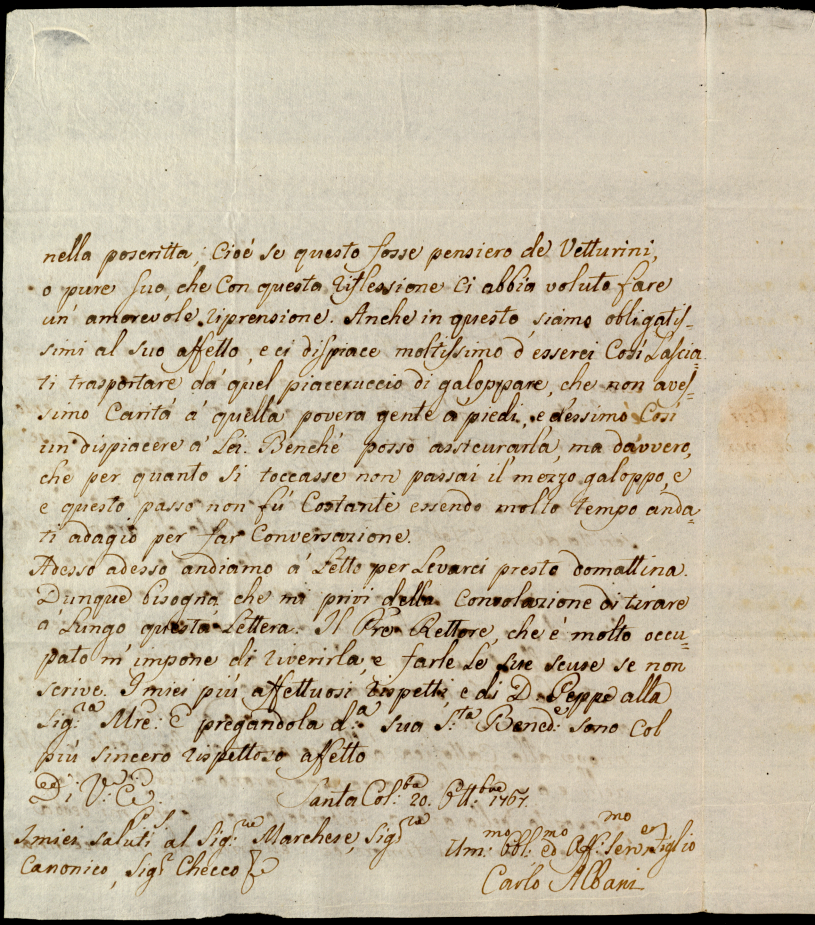 nella poscritta, Cioé se questo fosse pensiero de Vetturini,
o pure Suo, che Con questa riflessione Ci abbia voluto fare
un' amorevole riprensione. Anche in questo siamo obligatis-
simi al suo affetto, e ci dispiace moltissimo d'esserci Così Lascia-
ti trasportare dá quel piaceruccio di galoppare, che non aves-
simo Caritá á quella povera gente á piedi, e dessimo Cosí
un dispiacere á Lei. Benché posso assicurarla, ma davvero,
che per quanto si toccasse non passai il mezzo galoppo, e
e questo passo non fú Costante essendo molto tempo anda-
ti adagio per far Conversazione.
Adesso adesso andiamo á Letto per Levarci presto domattina.
Dunque bisogna che mi privi della Consolazione di tirare
á Lungo questa Lettera. Il Pre Rettore, che é molto occu-
pato m'impone di riverirla, e farle Le sue scuse se non
scrive. I miei piú affettuosi rispetti, e di D. Peppe alla
Sig:ra Mre: E pregandola d:a sua S:ta Bened:e sono Col
piú sincero rispettoso affetto
Di V: E.
Santa Col:ba 20. Ott:bre 1767.
P. S.
I miei saluti al Sig:re Marchese, Sig:re
Canonico, Sig:r Checco
Um:mo Obl:mo ed Aff:mo Serv:er Figlio
Carlo Albani